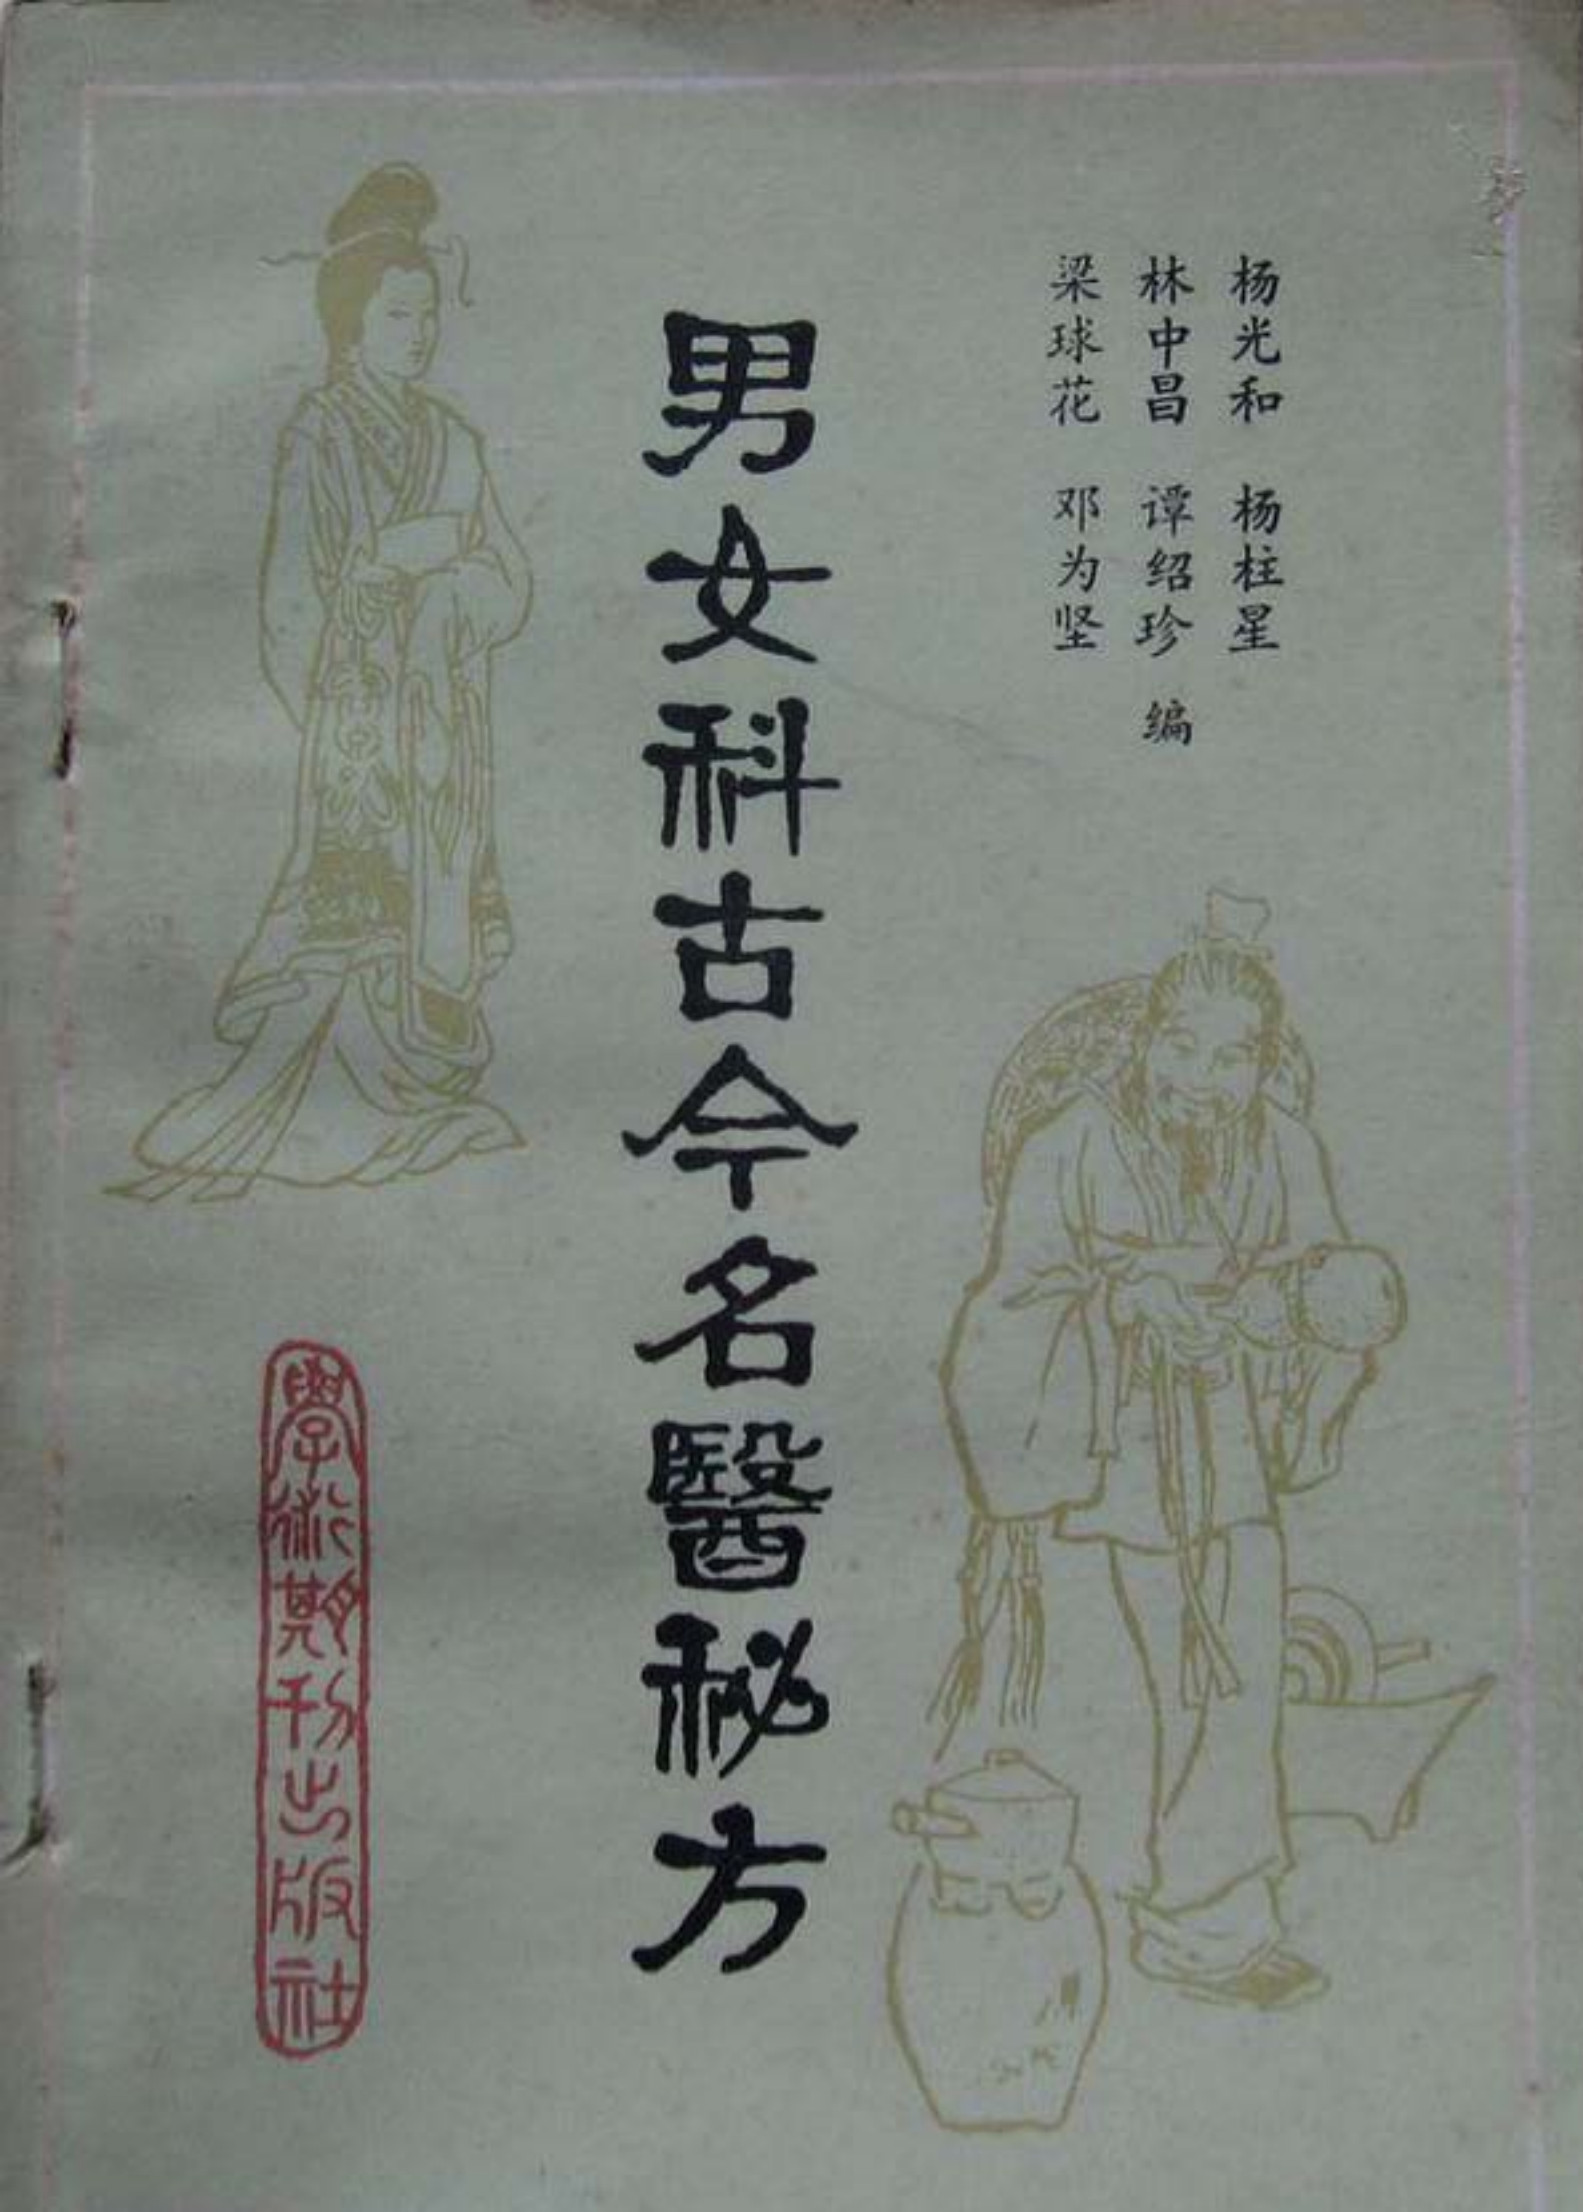 杨光和 杨柱星
林中昌 谭绍珍 编
梁球花 邓为坚
男女科古今名醫秘方
學術期刊出版社